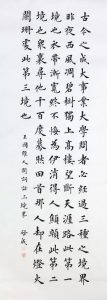 古今之成大事業大學問者必經過三種之境界
昨夜西風凋碧樹獨上高樓望盡天涯路此第一
境也衣帶漸寬終不悔為伊消得人憔悴此第二
境也眾裏尋他千百度驀然回首那人卻在燈火
闌珊處此第三境也
王國維人間詞話三境界